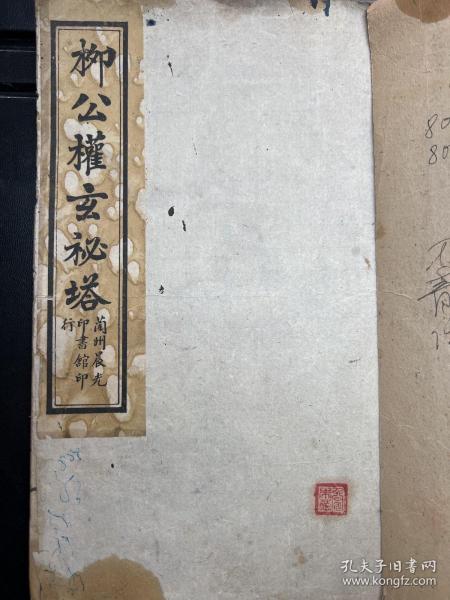 柳公權玄祕塔
蘭州晨光
印書館印
行
80
80
孔夫子旧书网
www.kongfz.com